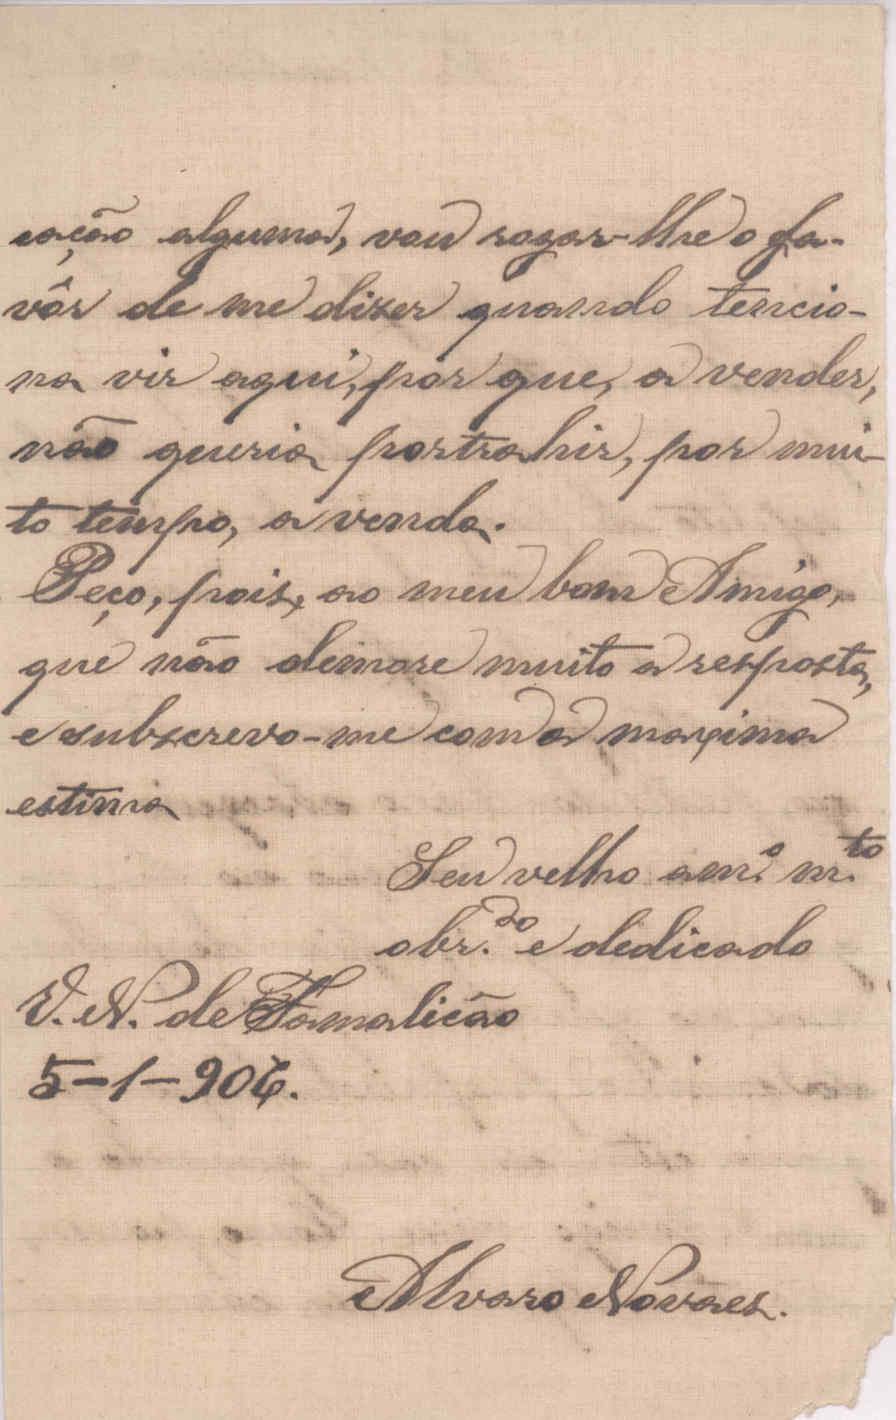 cação alguma, vou rogar-lhe o fa-
vôr de me dizer quando tencio-
na vir aqui, por que, a vender,
não queria portrahir, por mui-
to tempo, a venda.
Peço, pois, ao meu bom Amigo,
que não demore muito a resposta,
e subscrevo-me com a maxima
estima
Seu velho am.º m.to
obr.do e dedicado
V. N. de Famalicão
5-1-906.
Alvaro Novaes.